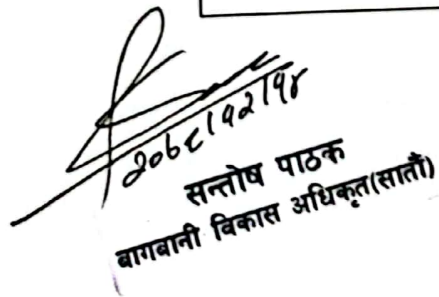 २०७८।१२।१४
सन्तोष पाठक
बागवानी विकास अधिकृत(सातौं)